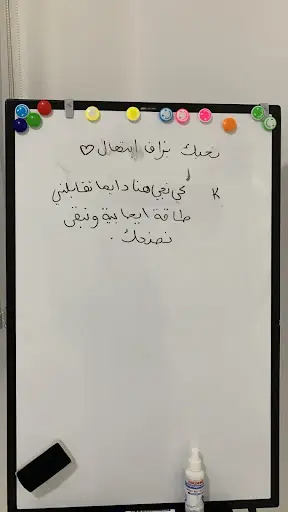 نحبك بزاف إبتهال ♡
K كي نجي هنا دايما تقابلني
طاقة ايجابية ونبقى
نضحك .